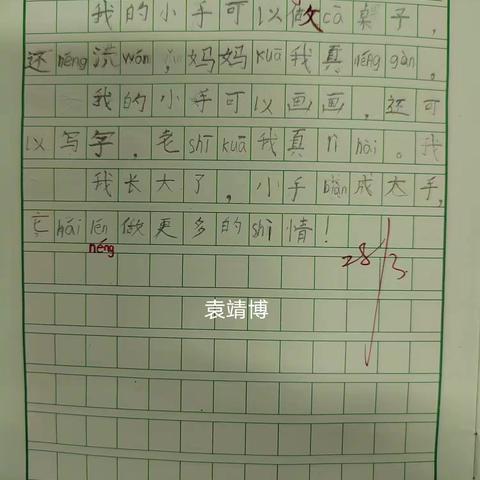 我的小手可以做cā桌子，
还néng洗wǎn，妈妈kuā我真néng gàn。
我的小手可以画画，还可
以写字，老shī kuā我真lì hài。我
我长大了，小手biàn成大手，
它hái lén做更多的shì情！
néng
28/3
袁靖博